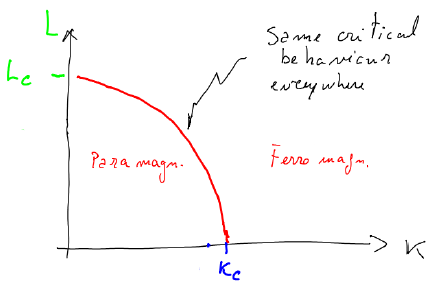 L
Same critical
behaviour
everywhere
Lc
Para magn.
Ferro magn.
K
Kc